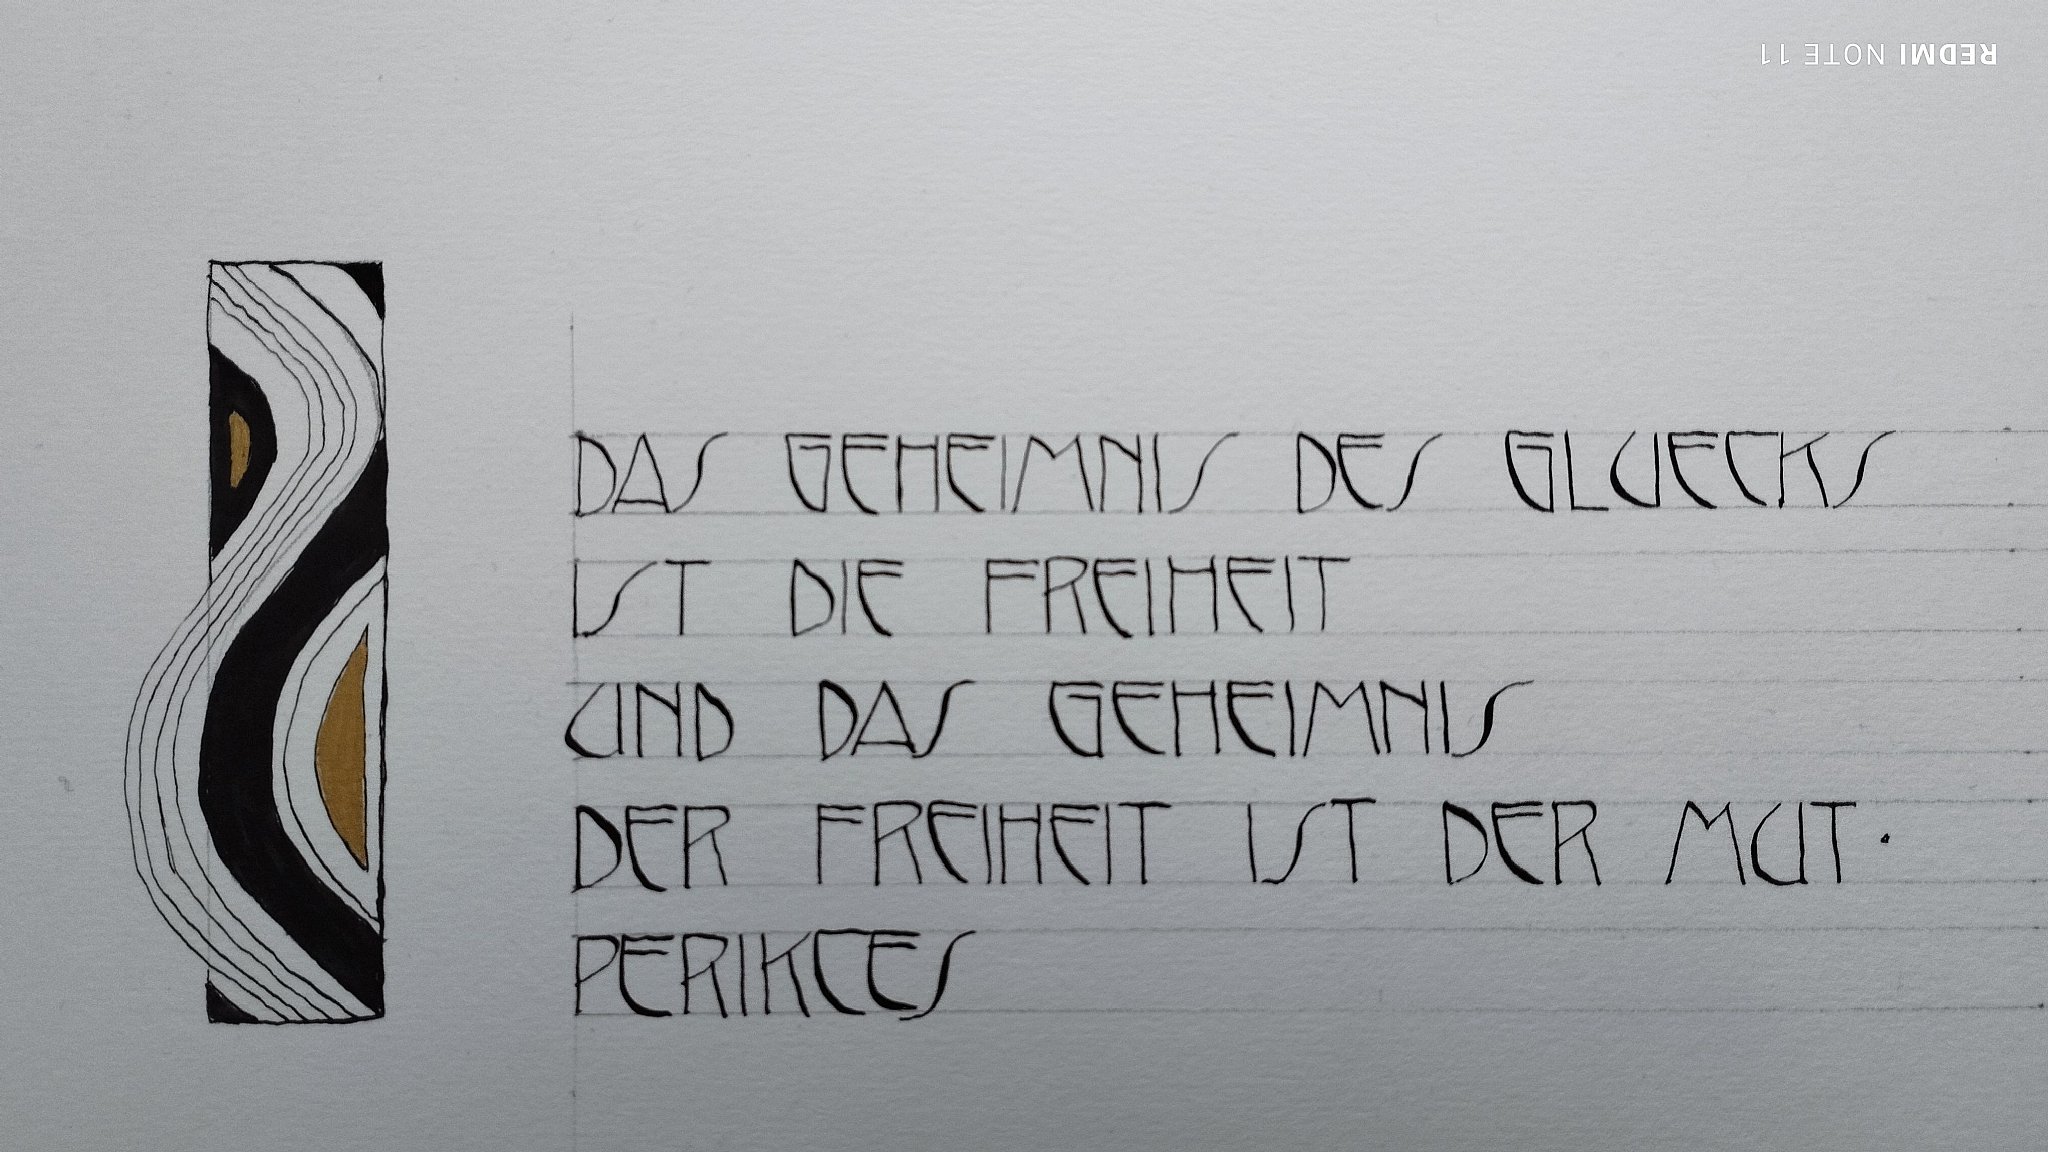 REDMI NOTE 11
DAS GEHEIMNIS DES GLUECKS
IST DIE FREIHEIT
UND DAS GEHEIMNIS
DER FREIHEIT IST DER MUT.
PERIKCES